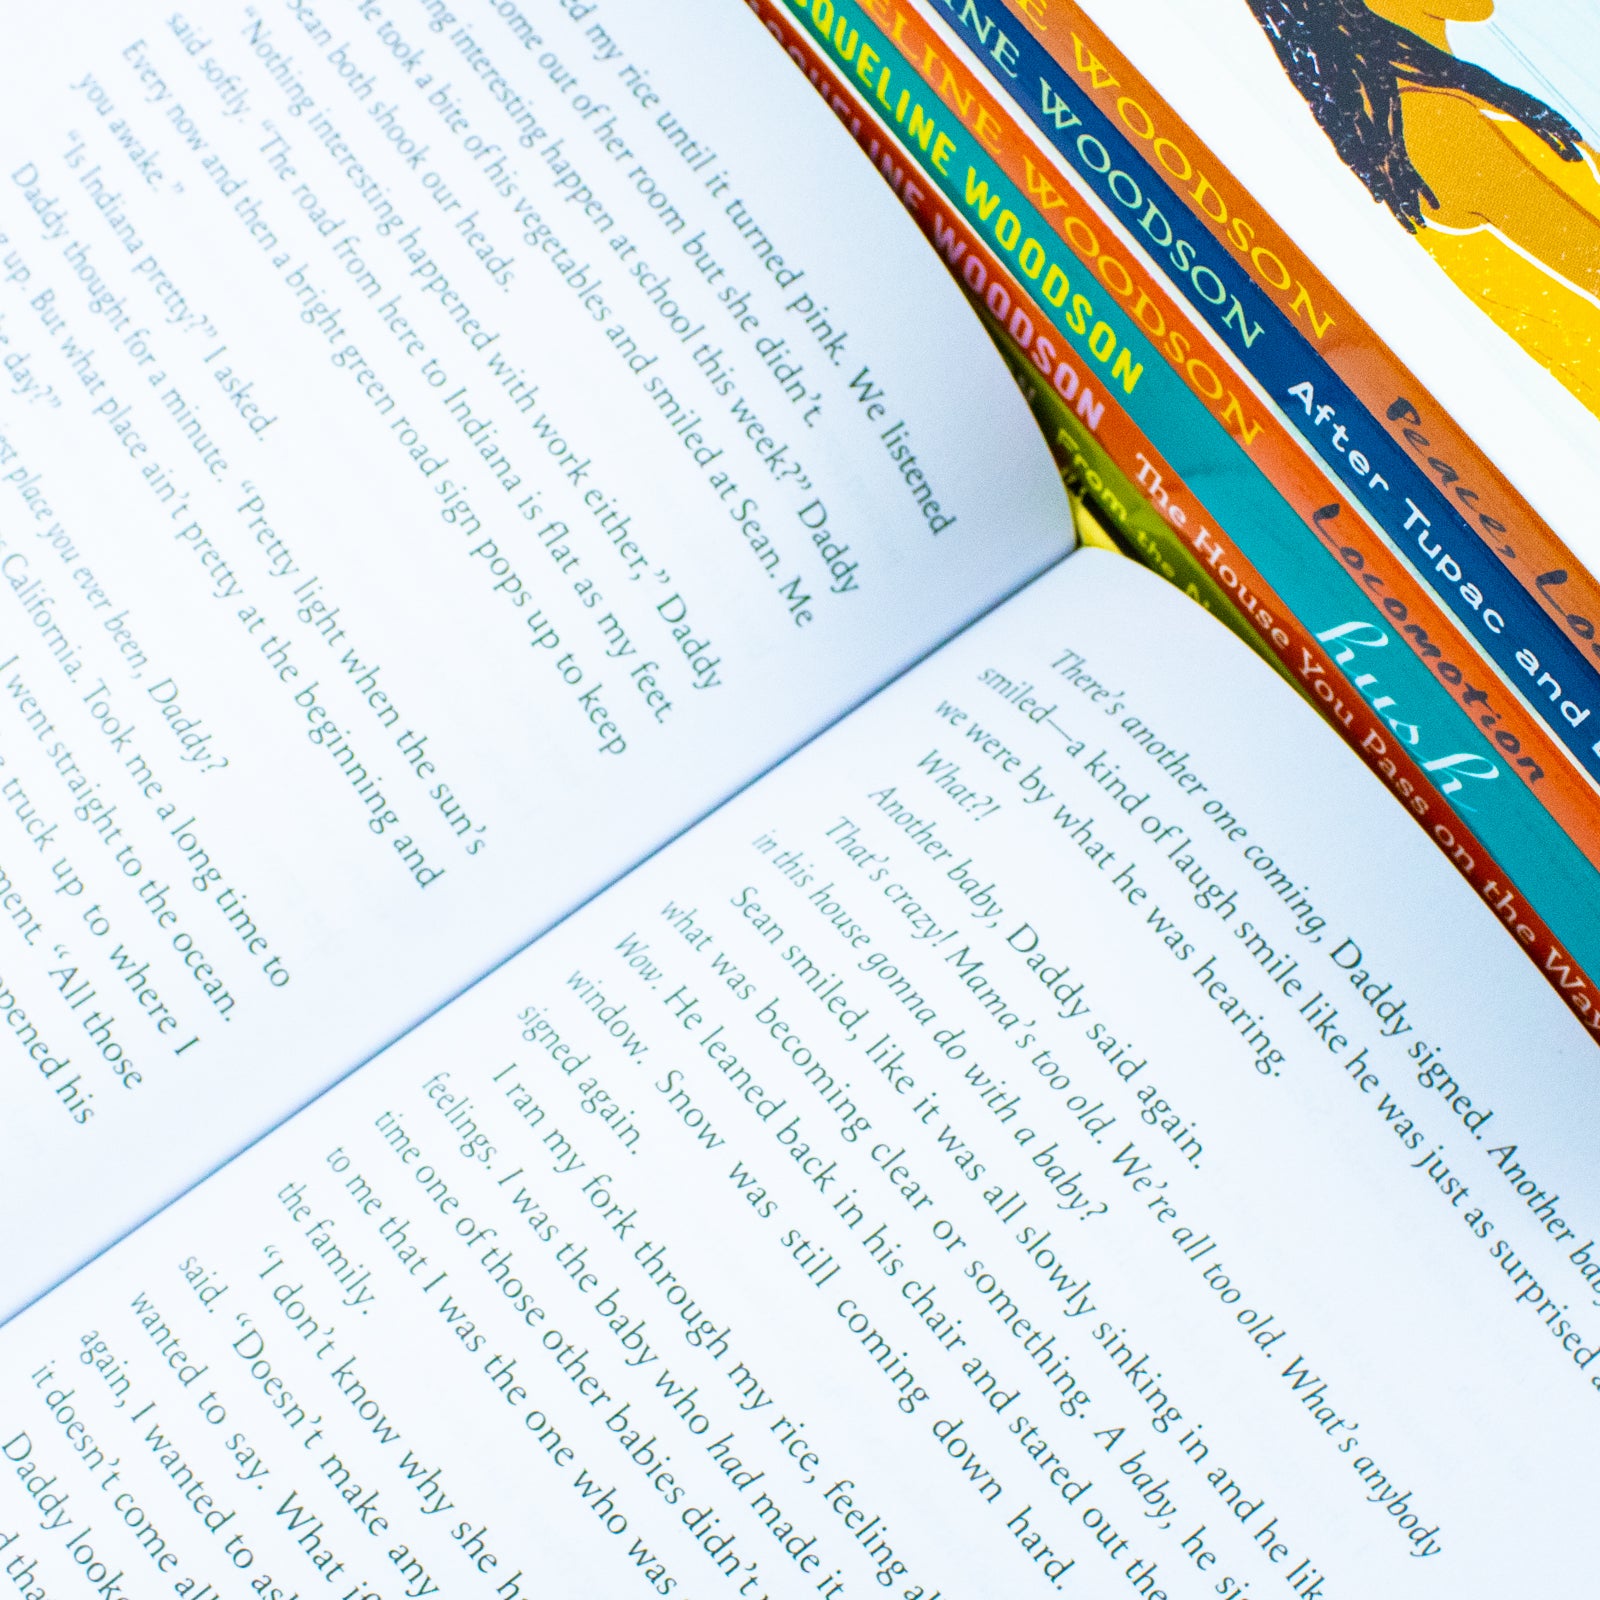 ed my rice until it turned pink. We listened
come out of her room but she didn't.
ng interesting happen at school this week?" Daddy
He took a bite of his vegetables and smiled at Sean. Me
Sean both shook our heads.
"Nothing interesting happened with work either," Daddy
said softly. "The road from here to Indiana is flat as my feet.
Every now and then a bright green road sign pops up to keep
you awake."
"Is Indiana pretty?" I asked.
Daddy thought for a minute. "Pretty light when the sun's
g up. But what place ain't pretty at the beginning and
he day?"
est place you ever been, Daddy?
California. Took me a long time to
I went straight to the ocean.
e truck up to where I
ment. "All those
opened his
There's another one coming, Daddy signed. Another bab
smiled—a kind of laugh smile like he was just as surprised a
we were by what he was hearing.
What?!
Another baby, Daddy said again.
That's crazy! Mama's too old. We're all too old. What's anybody
in this house gonna do with a baby?
Sean smiled, like it was all slowly sinking in and he lik
what was becoming clear or something. A baby, he si
Wow. He leaned back in his chair and stared out the
window. Snow was still coming down hard.
signed again.
I ran my fork through my rice, feeling al
feelings. I was the baby who had made it
time one of those other babies didn't
to me that I was the one who was
the family.
"I don't know why she ha
said. "Doesn't make any
wanted to say. What if
again, I wanted to as
it doesn't come all
Daddy looke
d tha
E WOODSON Peace, Loc
INE WOODSON After Tupac and D
ELINE WOODSON Locomotion
SQUELINE WOODSON hush
CQUELINE WOODSON The House You Pass on the Way
From the N